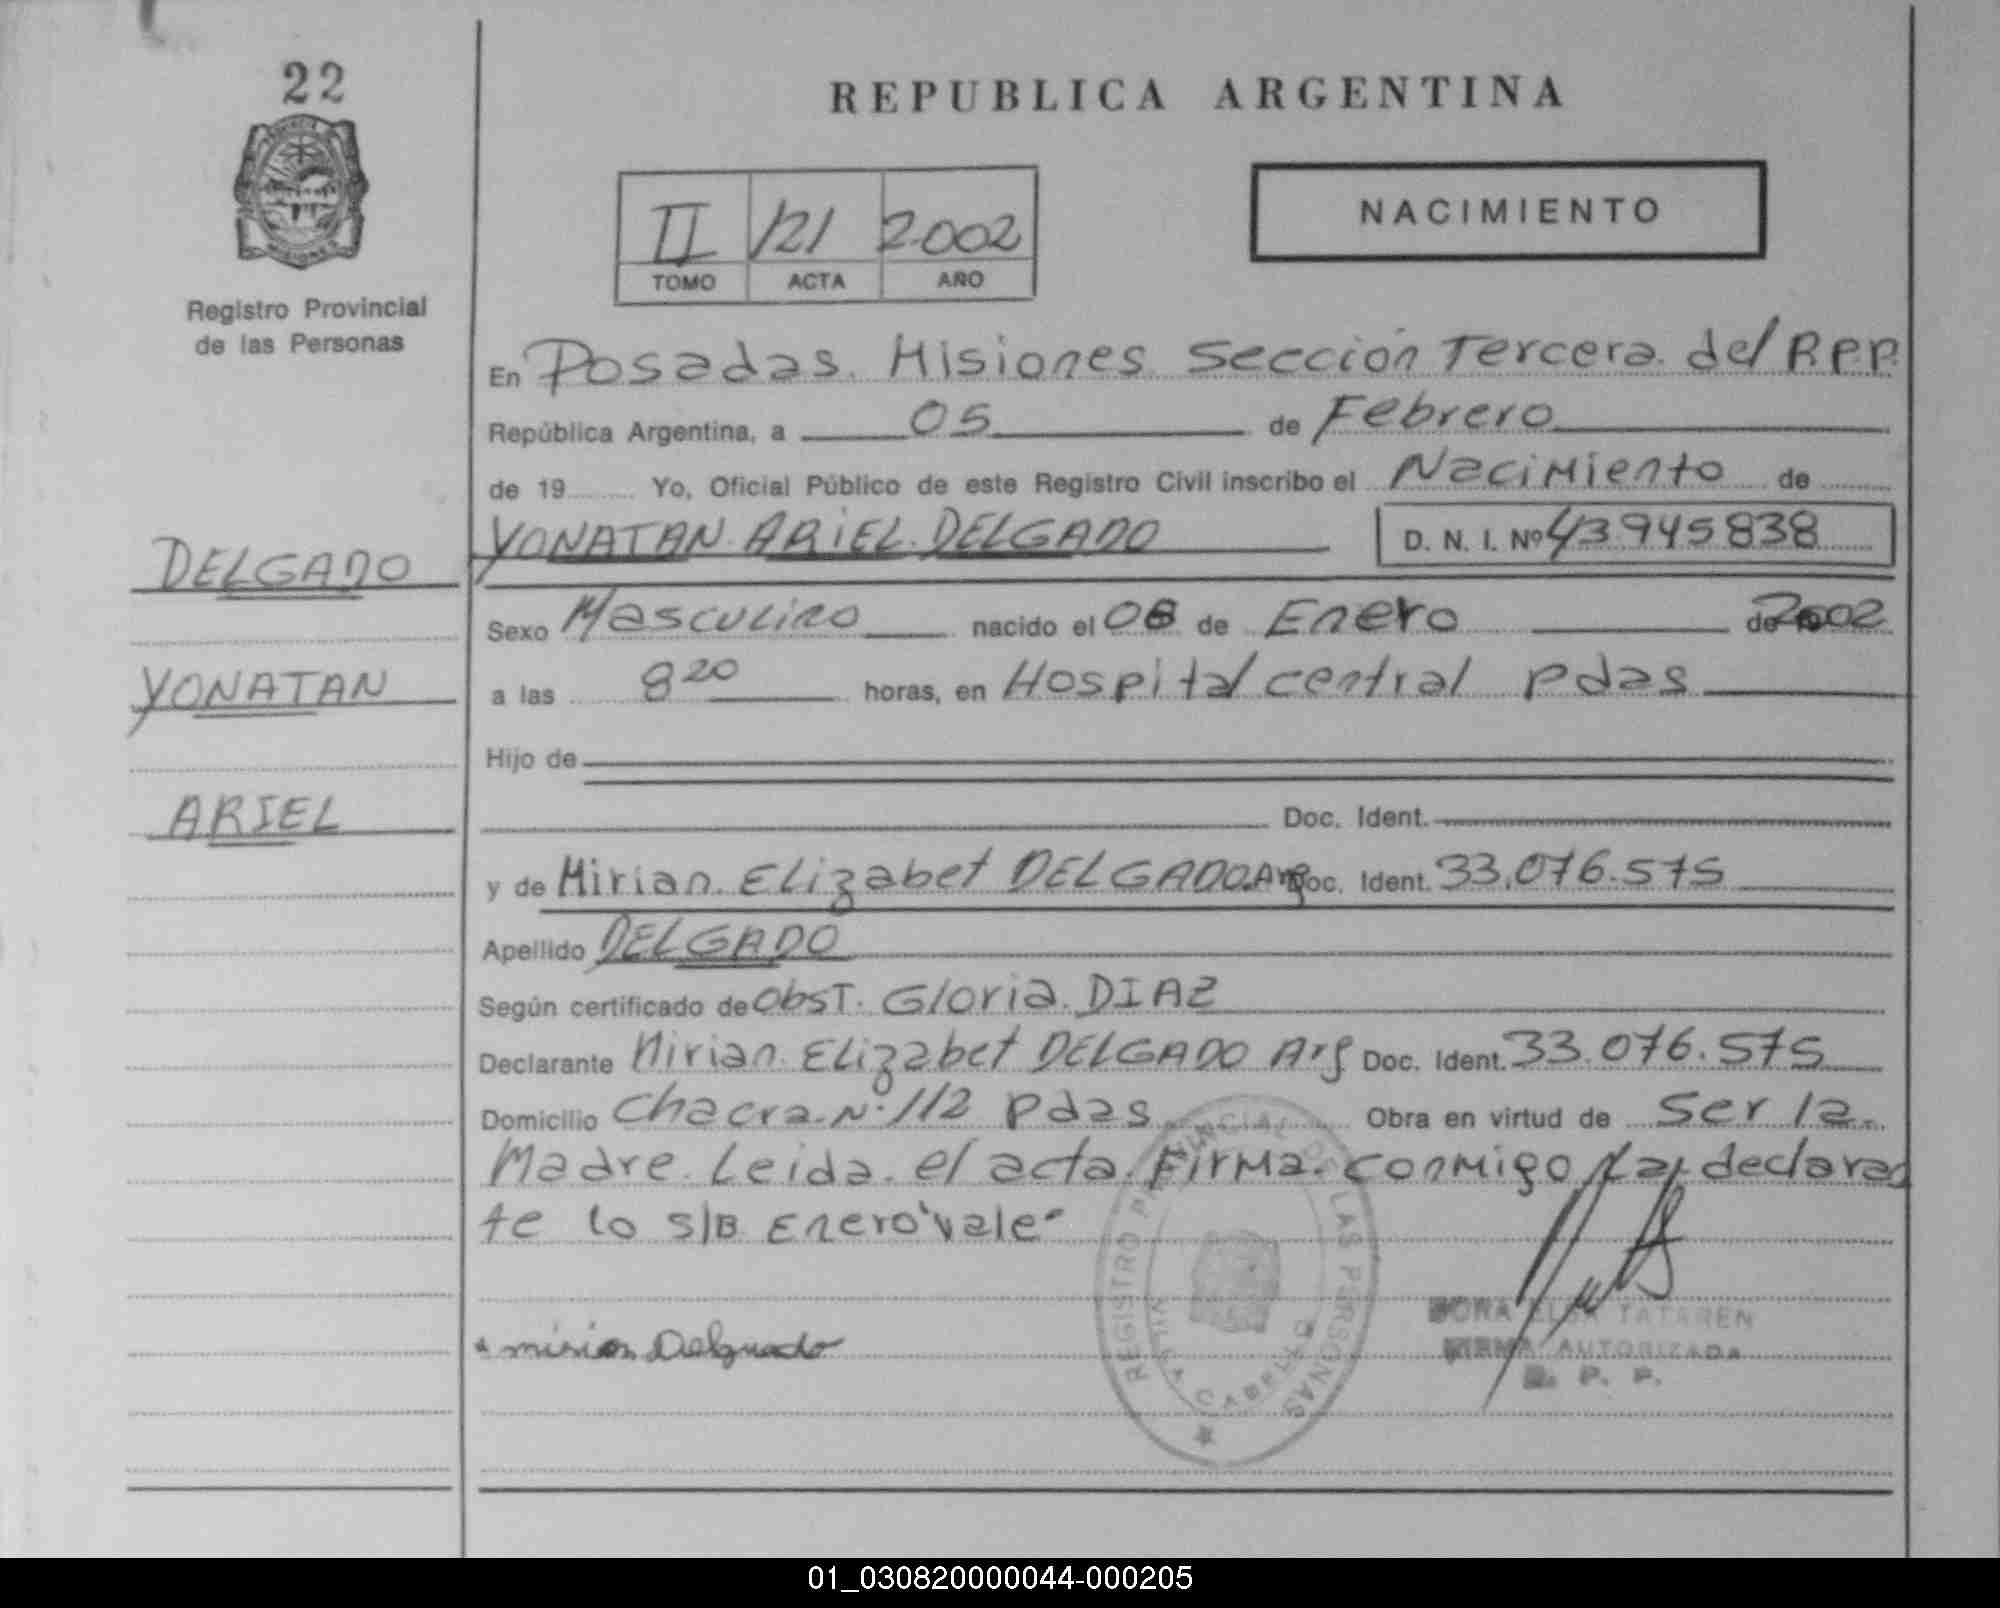 22
REPUBLICA ARGENTINA
NACIMIENTO
II 121 2.002
TOMO ACTA AÑO
Registro Provincial
de las Personas
En Posadas. Misiones Sección Tercera del R.P.P.
República Argentina, a 05 de Febrero
de 19 Yo, Oficial Público de este Registro Civil inscribo el Nacimiento de
YONATAN ARIEL DELGADO D. N. I. Nº 43945838
DELGADO
YONATAN
ARIEL
Sexo Masculino nacido el 08 de Enero de 2002
a las 8 20 horas, en Hospital central pdas
Hijo de
Doc. Ident.
y de Mirian Elizabet DELGADO Arg Doc. Ident. 33.076.575
Apellido DELGADO
Según certificado de Obst. Gloria DIAZ
Declarante Mirian Elizabet DELGADO Arg Doc. Ident. 33.076.575
Domicilio Chacra Nº 112 pdas Obra en virtud de Ser la
Madre. Leida el acta Firma conmigo la declaran
te lo s/B Enero "vale"
mirian Delgado
REGISTRO PROVINCIAL DE LAS PERSONAS
VILLA CABELLO
DORA ELSA TATAREN
FIRMA AUTORIZADA
R. P. P.
01_030820000044-000205